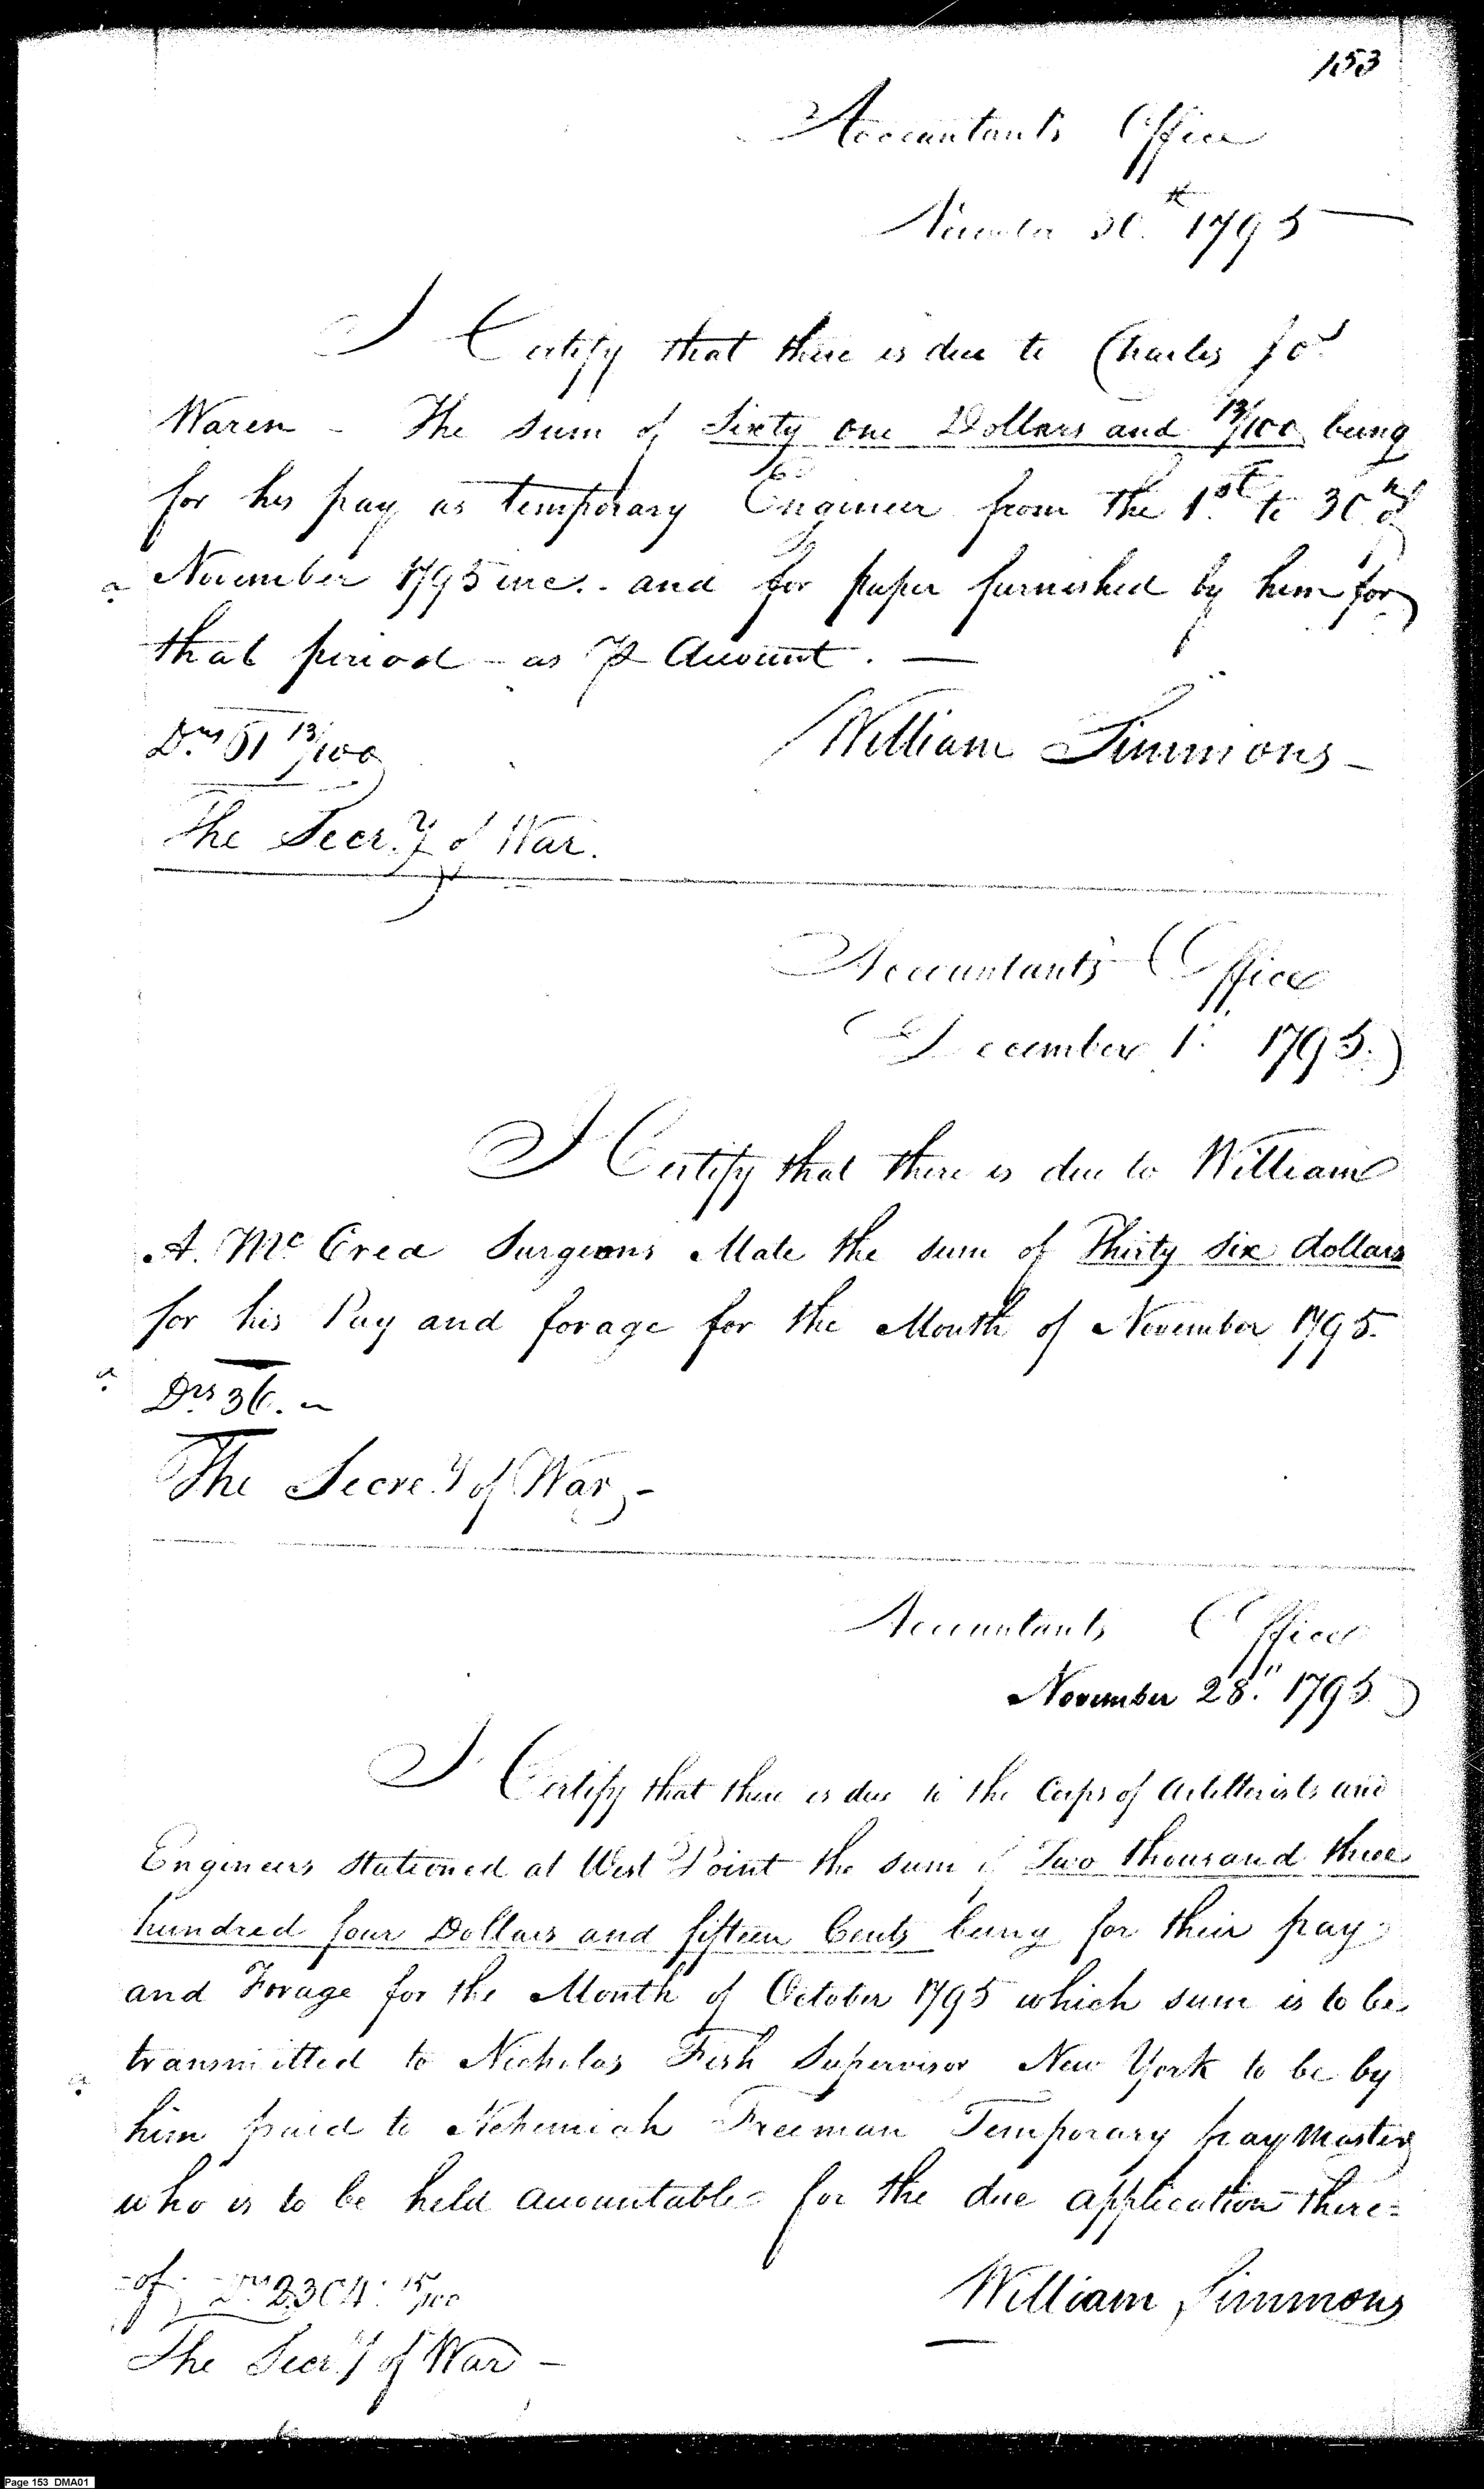 153
Accountants Office
November 30th 1795
I Certify that there is due to Charles Jos
Waren - The sum of Sixty one Dollars and 13/100 being
for his pay as temporary Engineer from the 1st to 30th
November 1795 inc. - and for paper furnished by him for
that period - as P Account. —
Drs 61 13/100
William Simmons -
The Secry of War.
Accountants Office
December 1. 1795.
I Certify that there is due to William
A. McCrea Surgeons Mate the sum of Thirty six dollars
for his Pay and forage for the Month of November 1795.
a
Drs 36. -
The Secrey of War -
Accountants Office
November 28." 1795
I Certify that there is due to the Corps of Artillerists and
Engineers stationed at West Point the sum of Two thousand three
hundred four Dollars and fifteen Cents being for their pay
and Forage for the Month of October 1795 which sum is to be
transmitted to Nicholas Fish Supervisor New York to be by
a
him paid to Nehemiah Freeman Temporary pay Master
who is to be held accountable for the due application there=
-of; Drs 2304. 15/100
William Simmons
The Secry of War -
Page 153 DMA01